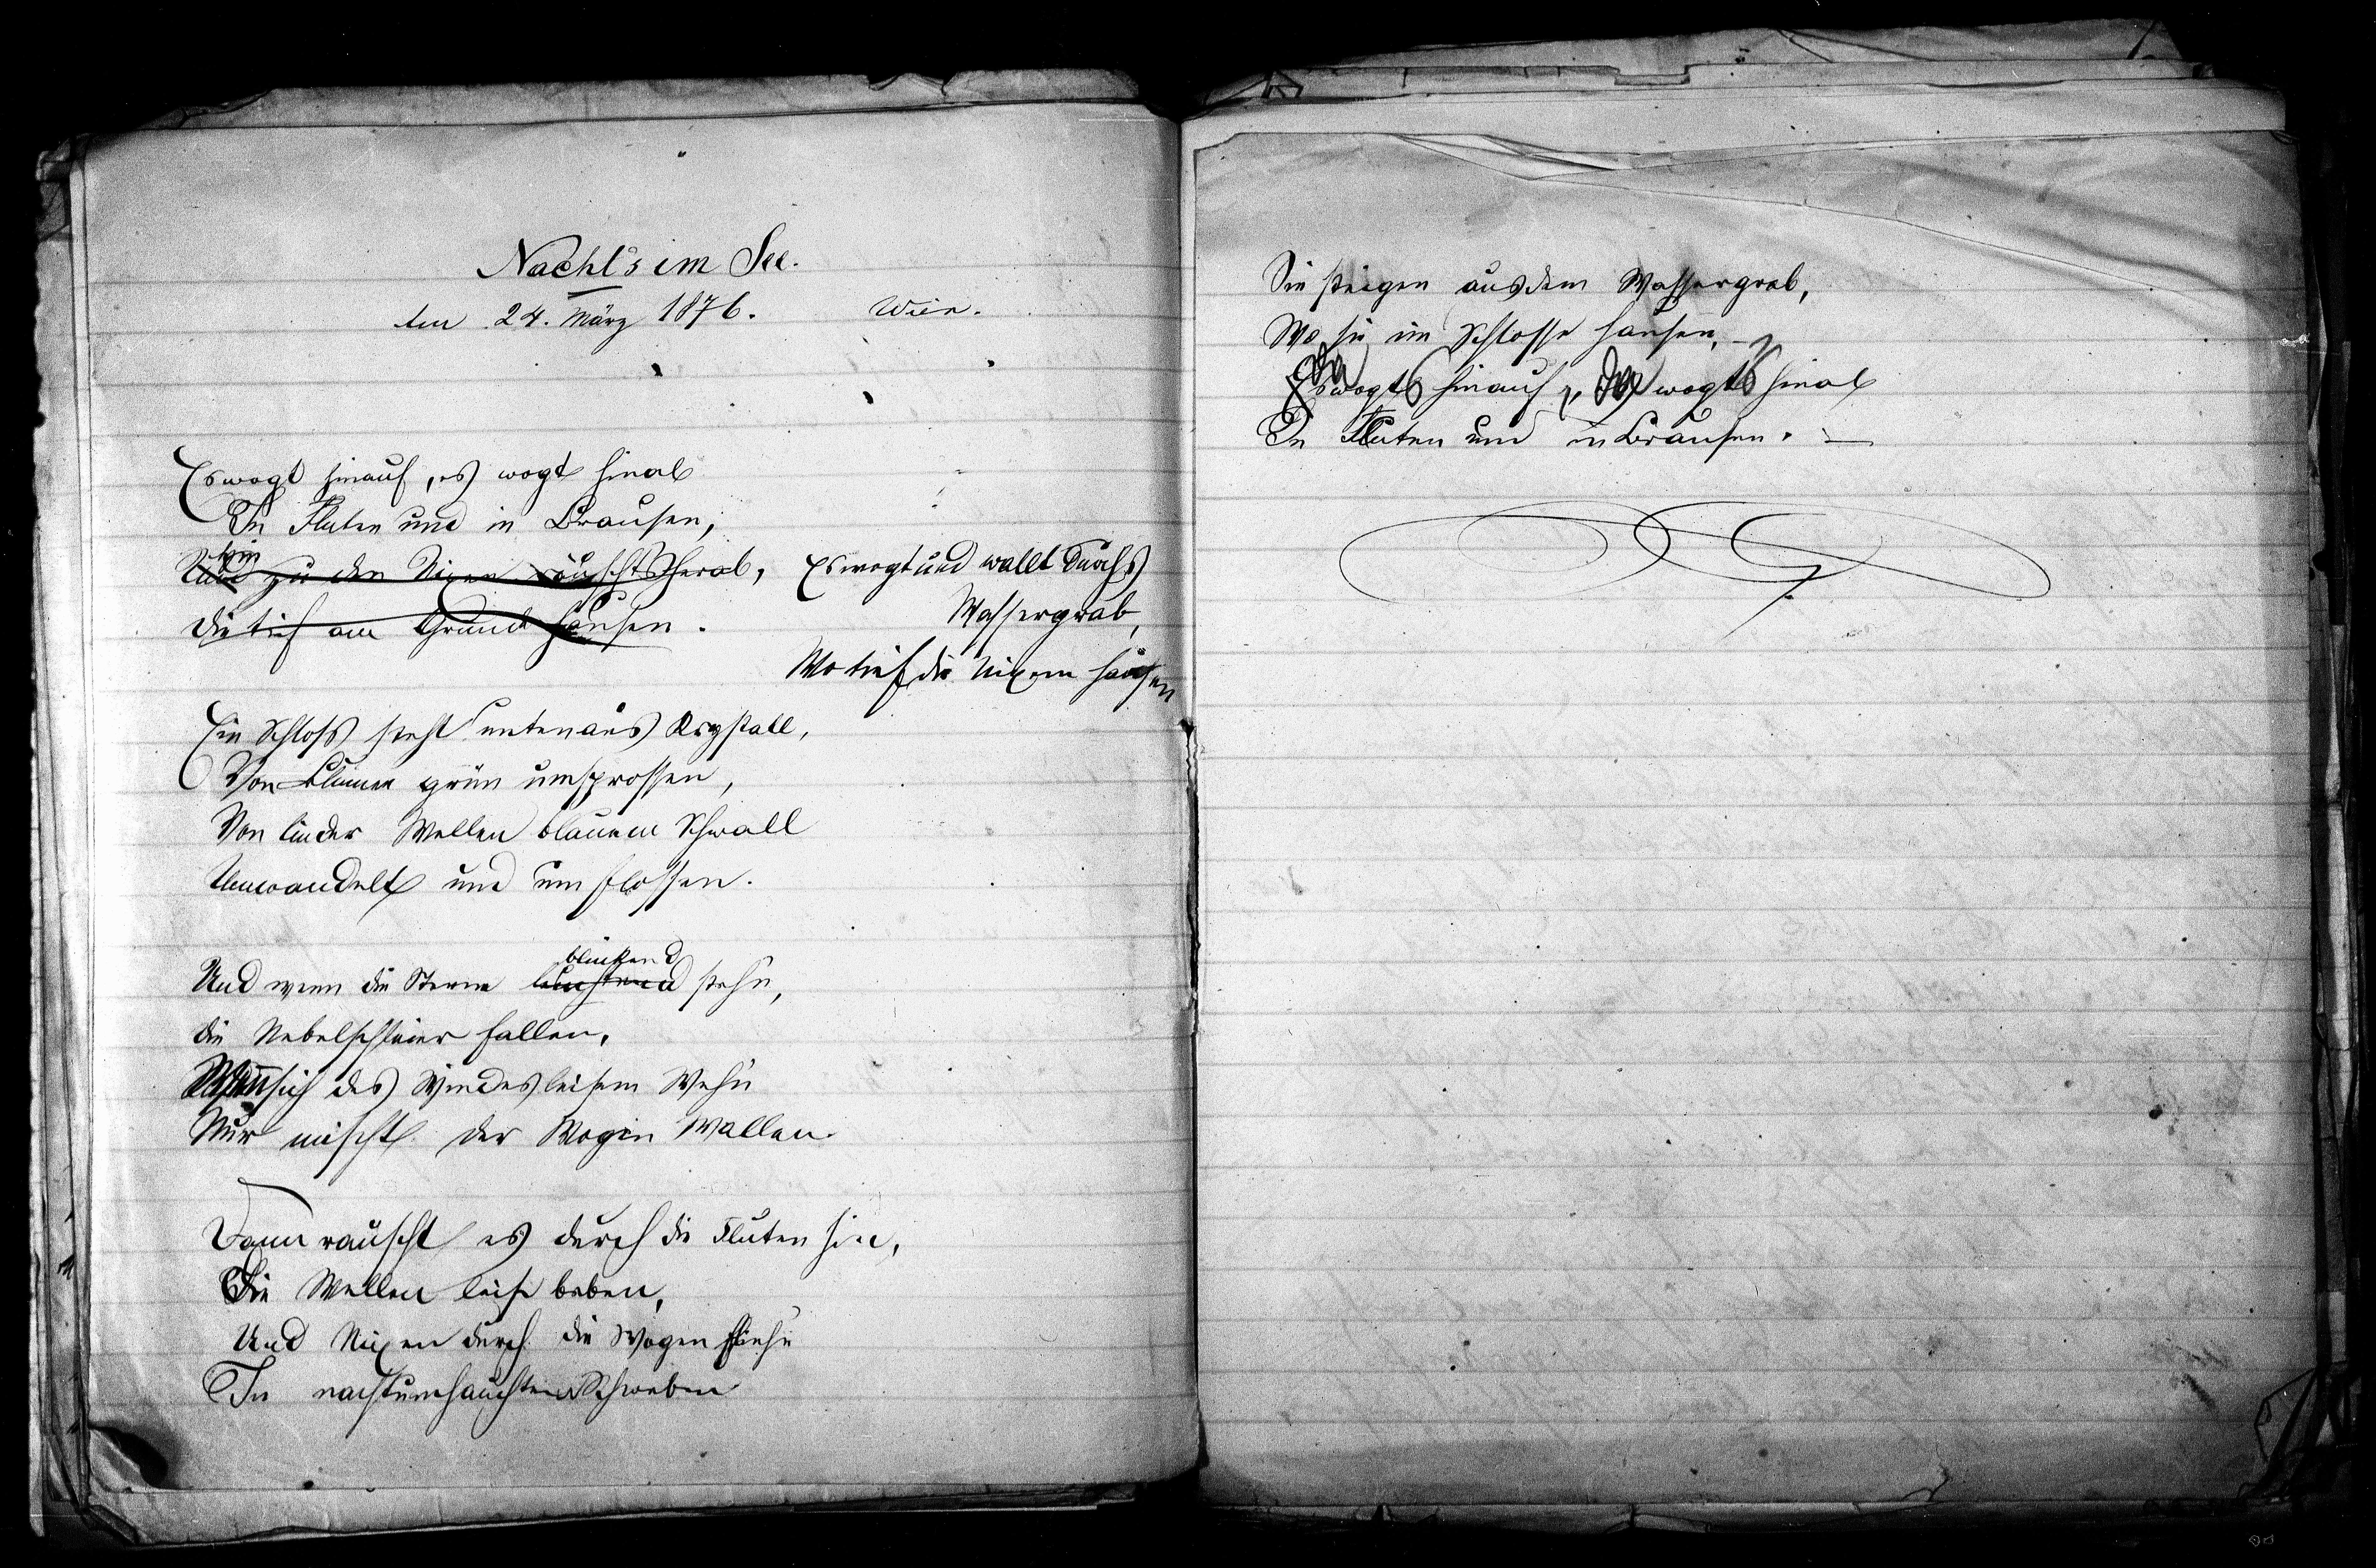 Nacht's im See.
Am 24. März 1876. Wien.
Es wogt hinauf, es wogt hinab
In Fluten und in Brausen,
hin
Und zu den Nixen rauscht's herab,
Die tief am Grunde hausen.
Es wogt und wallt durchs
Wassergrab,
Wo tief die Nixen hausen
Ein Schloss steht unten aus Krystall,
Von Blumen grün umsprossen,
Von linder Wellen blauem Schwall
Umwandelt und umflossen.
blinkend
Und wenn die Sterne leuchtend stehn,
Die Nebelschleier fallen,
Wenn sich des Windes leisem Wehn
Nur mischt der Wogen Wallen
Dann rauscht es durch die Fluten hin,
Die Wellen leise beben,
Und Nixen durch die Wogen fliehn
In nachtumhauchtem Schweben
Sie steigen aus dem Wassergrab,
Wo sie im Schlosse hausen, –
Es wogt hinauf, wogt hinab
In Fluten und in Brausen. —